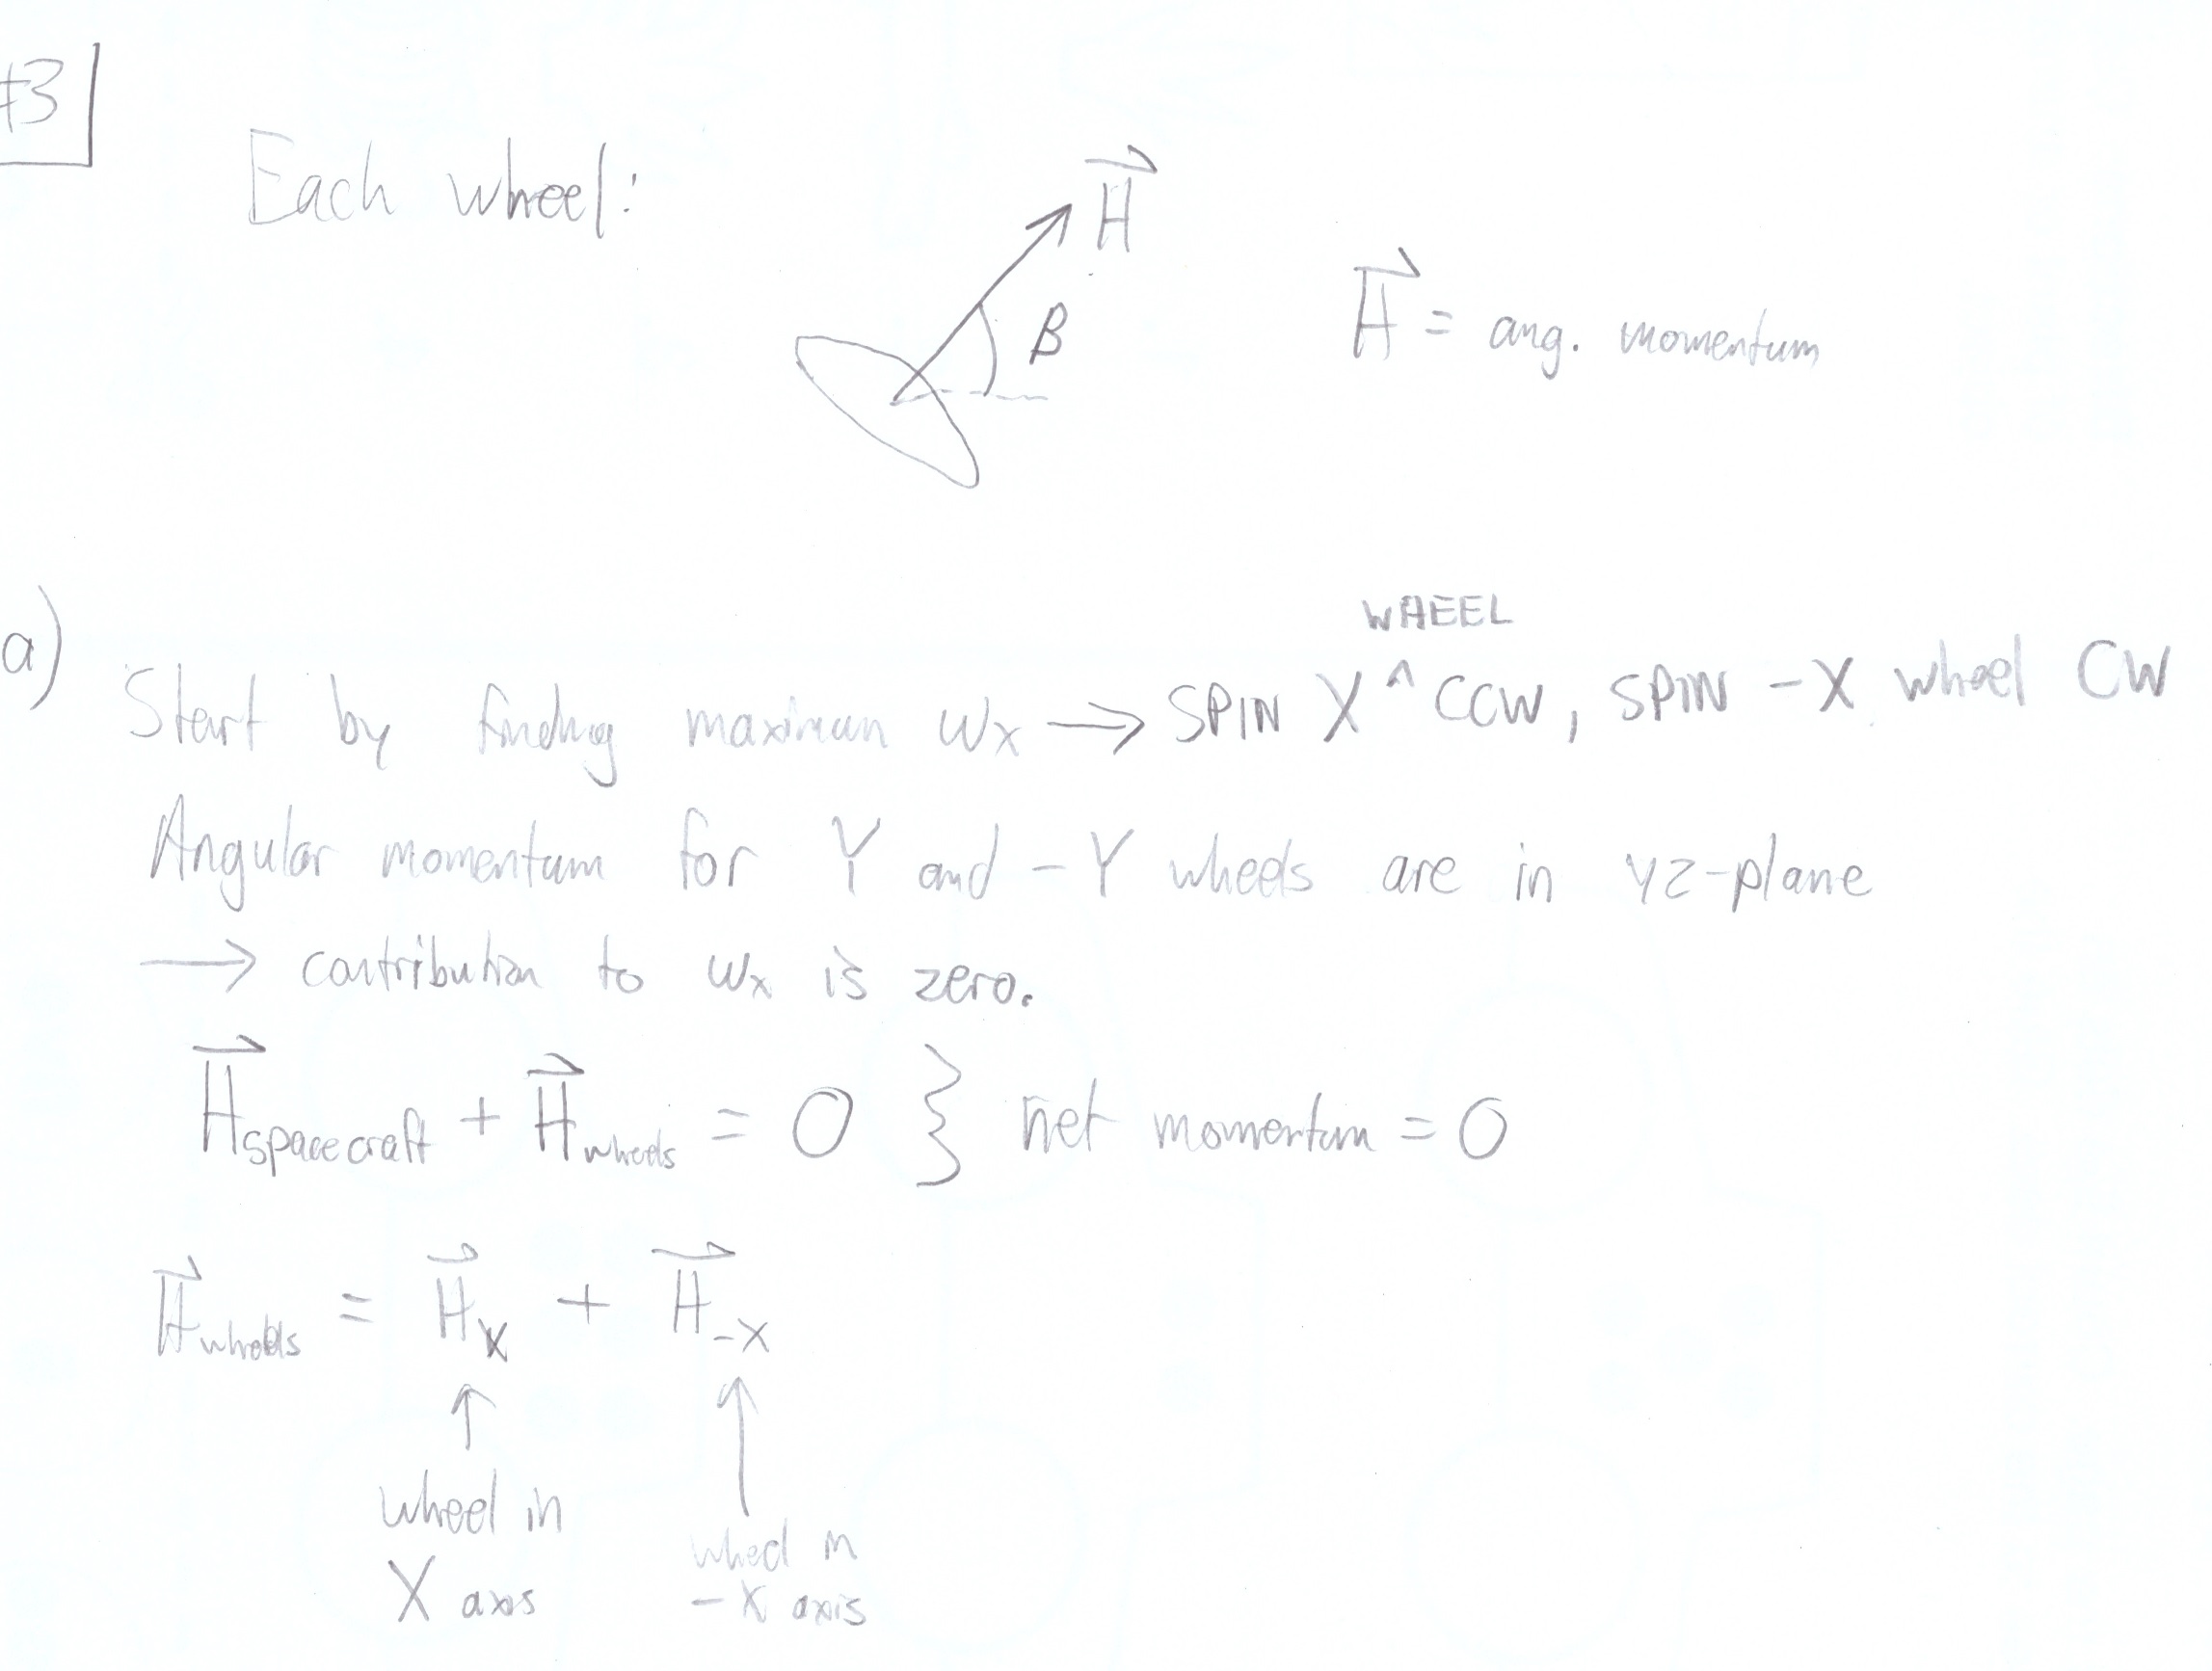 #3
Each wheel:
H⃗
β
H⃗ = ang. momentum
a)
WHEEL
Start by finding maximum ωx → SPIN X ^ CCW, SPIN -X wheel CW
Angular momentum for Y and -Y wheels are in yz-plane
→ contribution to ωx is zero.
H⃗spacecraft + H⃗wheels = 0 } net momentum = 0
H⃗wheels = H⃗X + H⃗-X
↑ ↑
wheel in
X axis
wheel in
-X axis